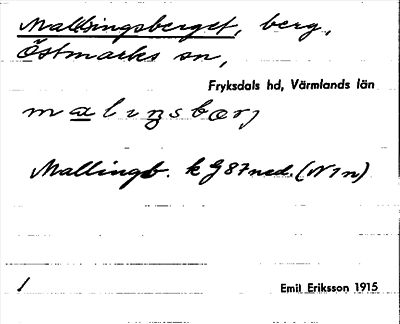 Mallsingsberget, berg,
Östmarks sn,
Fryksdals hd, Värmlands län
Mallingsb. k G 87 ned. (N 1 n)
1
Emil Eriksson 1915